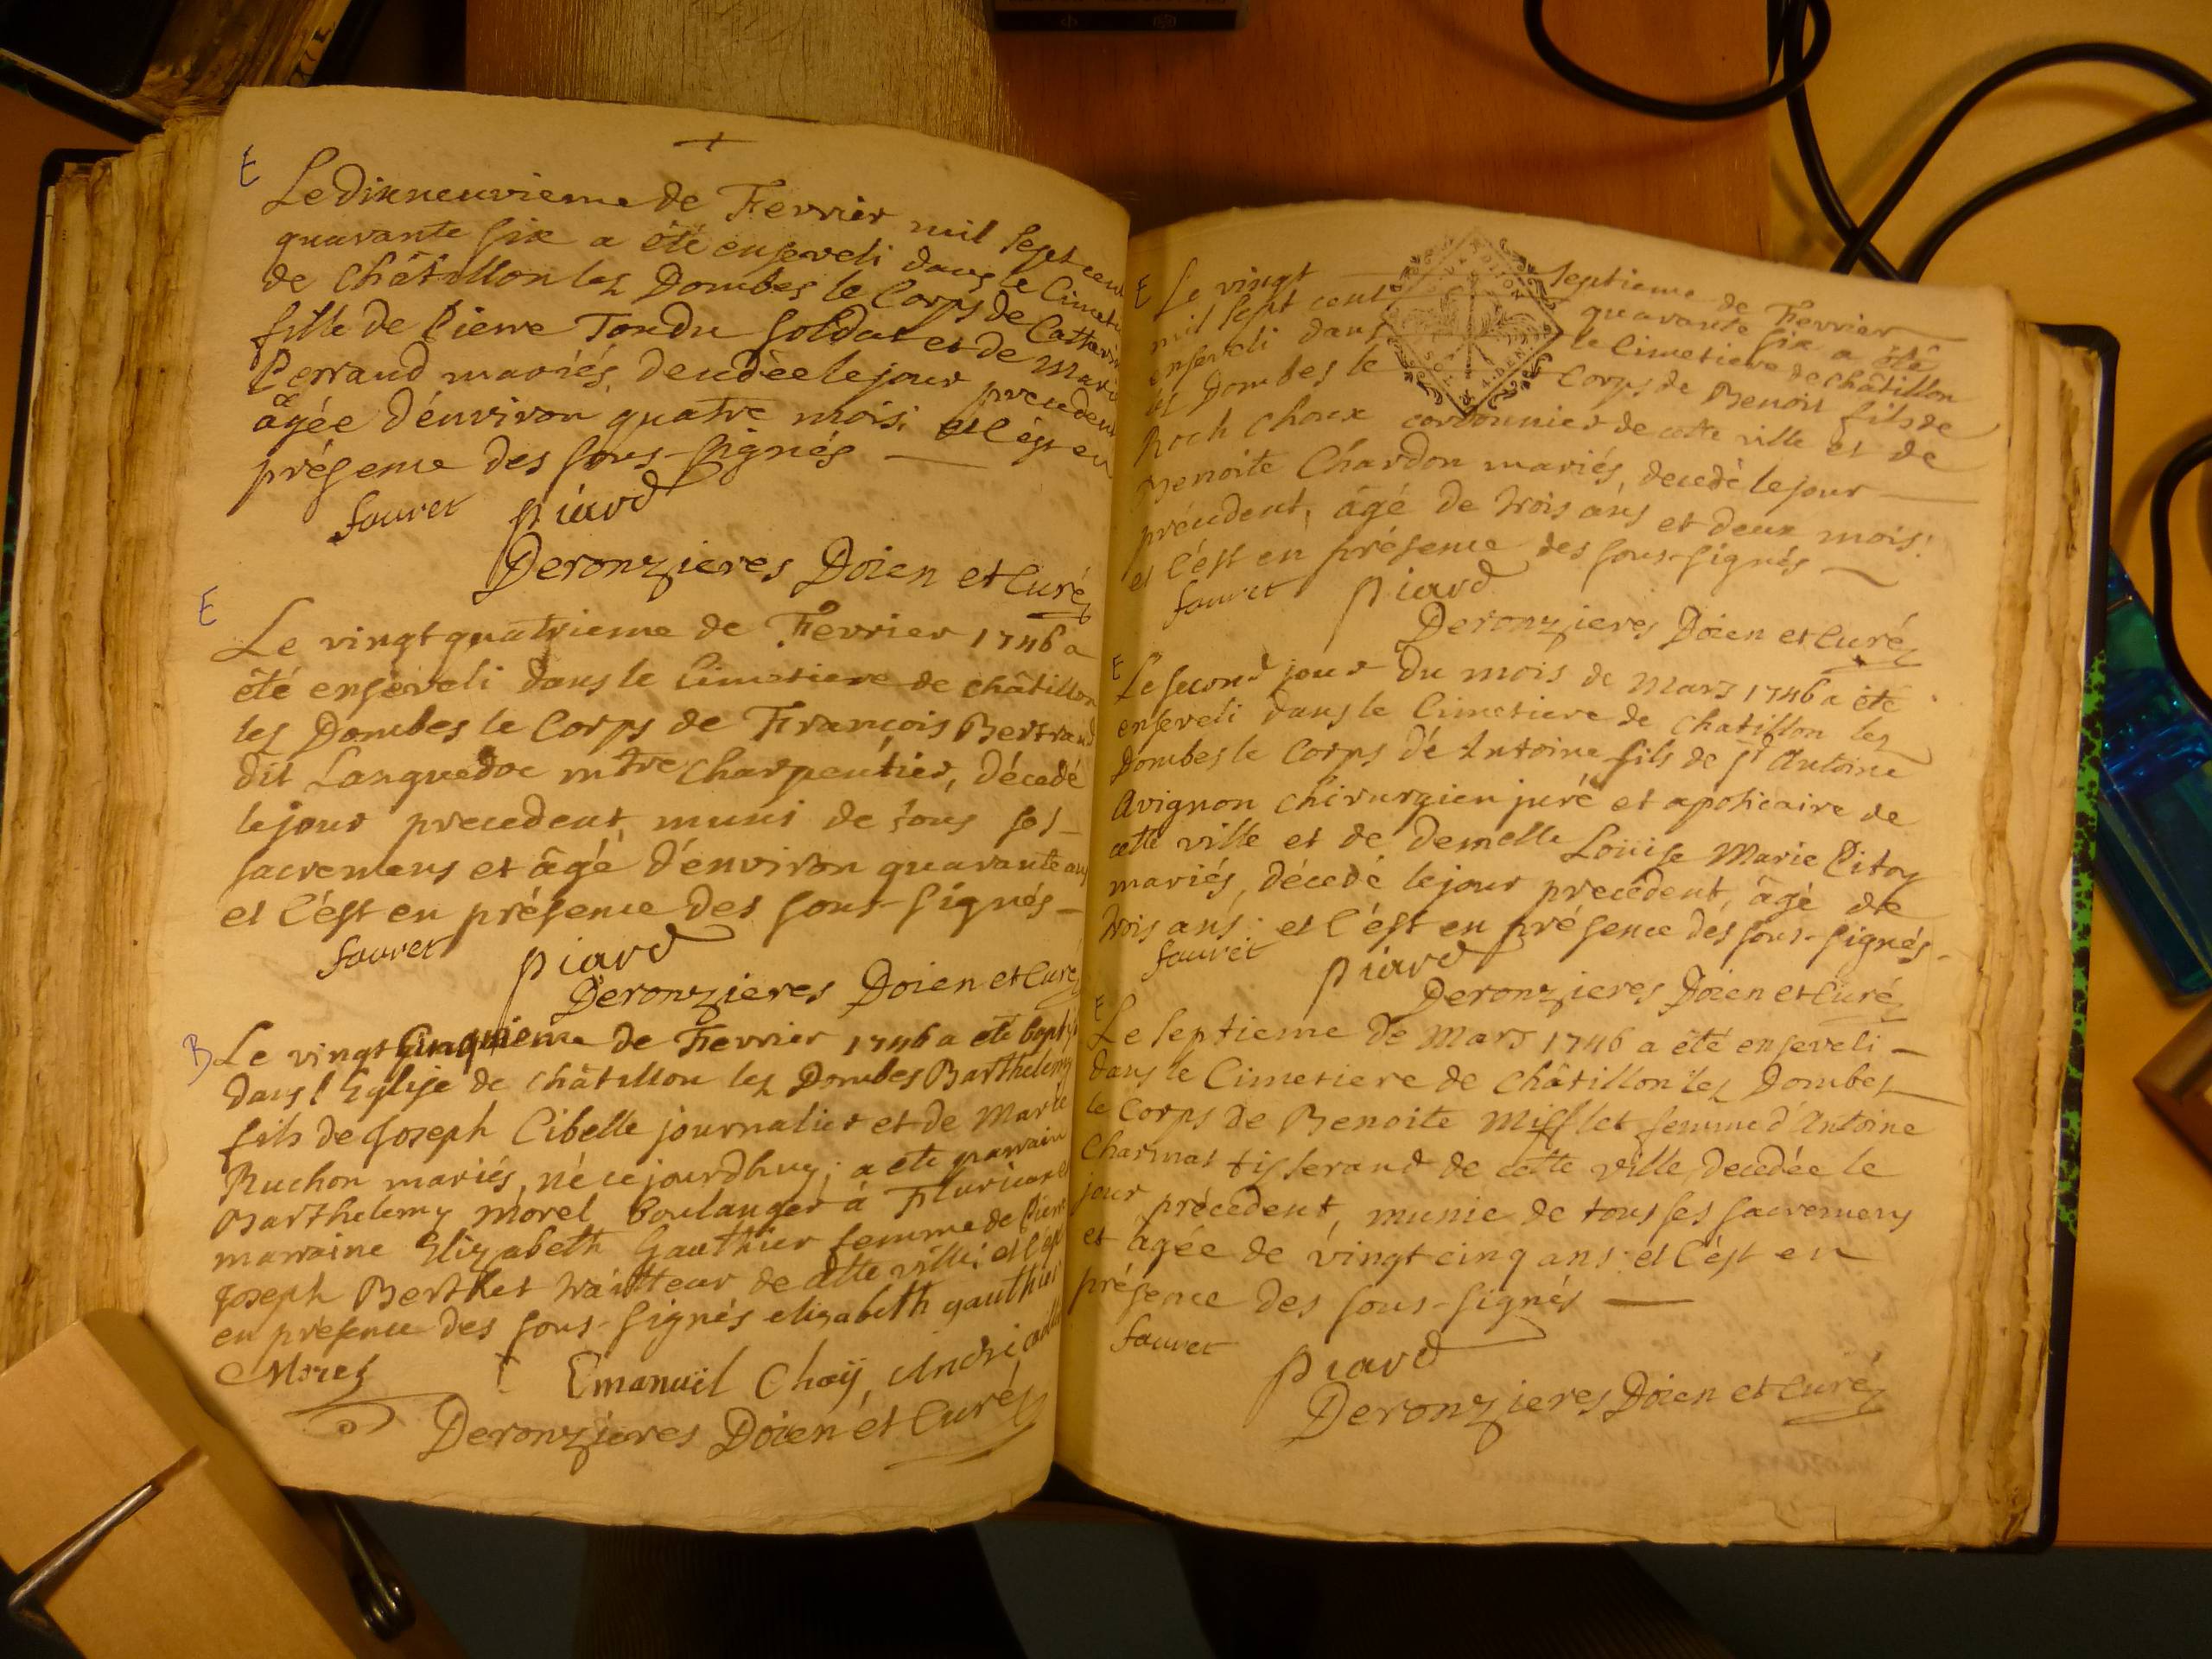 E
Le dixneuvieme de Fevrier mil sept cent
quarante six a été enseveli dans le
de Châtillon lez Dombes le Corps de
fille de Pierre Tondu soldat et de Marie
Perraud mariés, decedèe le jour precedent
âgée d'environ quatre mois; et c'est en
présence des sous-signés
fauret piard
Deronzieres Doien et Curé
E
Le vingtquatrieme de Fevrier 1746 a
été enseveli dans le Cimetiere de châtillon
lez Dombes le Corps de François Bertrand
dit Languedoc mtre Charpentier, décedé
le jour precedent, muni de tous ses
sacremens et âgé d'environ quarante ans
et c'est en présence des sous-signés
fauret piard
Deronzieres Doien et Curé
B
Le vingt Cinquieme de Fevrier 1746 a eté
dans l'Eglise de châtillon lez Dombes Barthelemy
fils de Joseph Cibelle journalier et de Marie
Ruchon mariés, né ce jourdhuy; a eté parrain
Barthelemy morel boulanger à
marraine Elizabeth Gauthier femme de Pierre
Joseph Berthet traitteur de cette ville; et c'est
en présence des sous-signés elizabeth gauthier
Morel Emanuel Chaÿ, André
Deronzieres Doien et Curé
E
Le vingt septieme de Fevrier
mil sept cent quarante six a été
enseveli dans le Cimetiere de châtillon
lez Dombes le Corps de Benoit fils de
Roch Choux cordonnier de cette ville et de
Benoite Chardon mariés, decedé le jour
précedent, âgé de trois ans et deux mois:
et c'est en présence des sous-signés
fauret piard
Deronzieres Doien et Curé
E
Le second jour du mois de Mars 1746 a été
enseveli dans le Cimetiere de chatillon lez
Dombes le Corps d'Antoine fils de Sr Antoine
Avignon chirurgien juré et apoticaire de
cette ville et de Demelle Loüise Marie Pitoy
mariés, décedé le jour precédent, âgé de
trois ans: et c'est en présence des sous-signés
fauret piard
Deronzieres Doien et Curé
E
Le septieme de Mars 1746 a été enseveli
dans le Cimetiere de châtillon lez Dombes
le Corps de Benoite femme d'Antoine
Charmat tisserand de cette ville, decedée le
jour précedent, munie de tous ses sacremens
et âgée de vingt cinq ans: et c'est en
présence des sous-signés
fauret piard
Deronzieres Doien et Curé